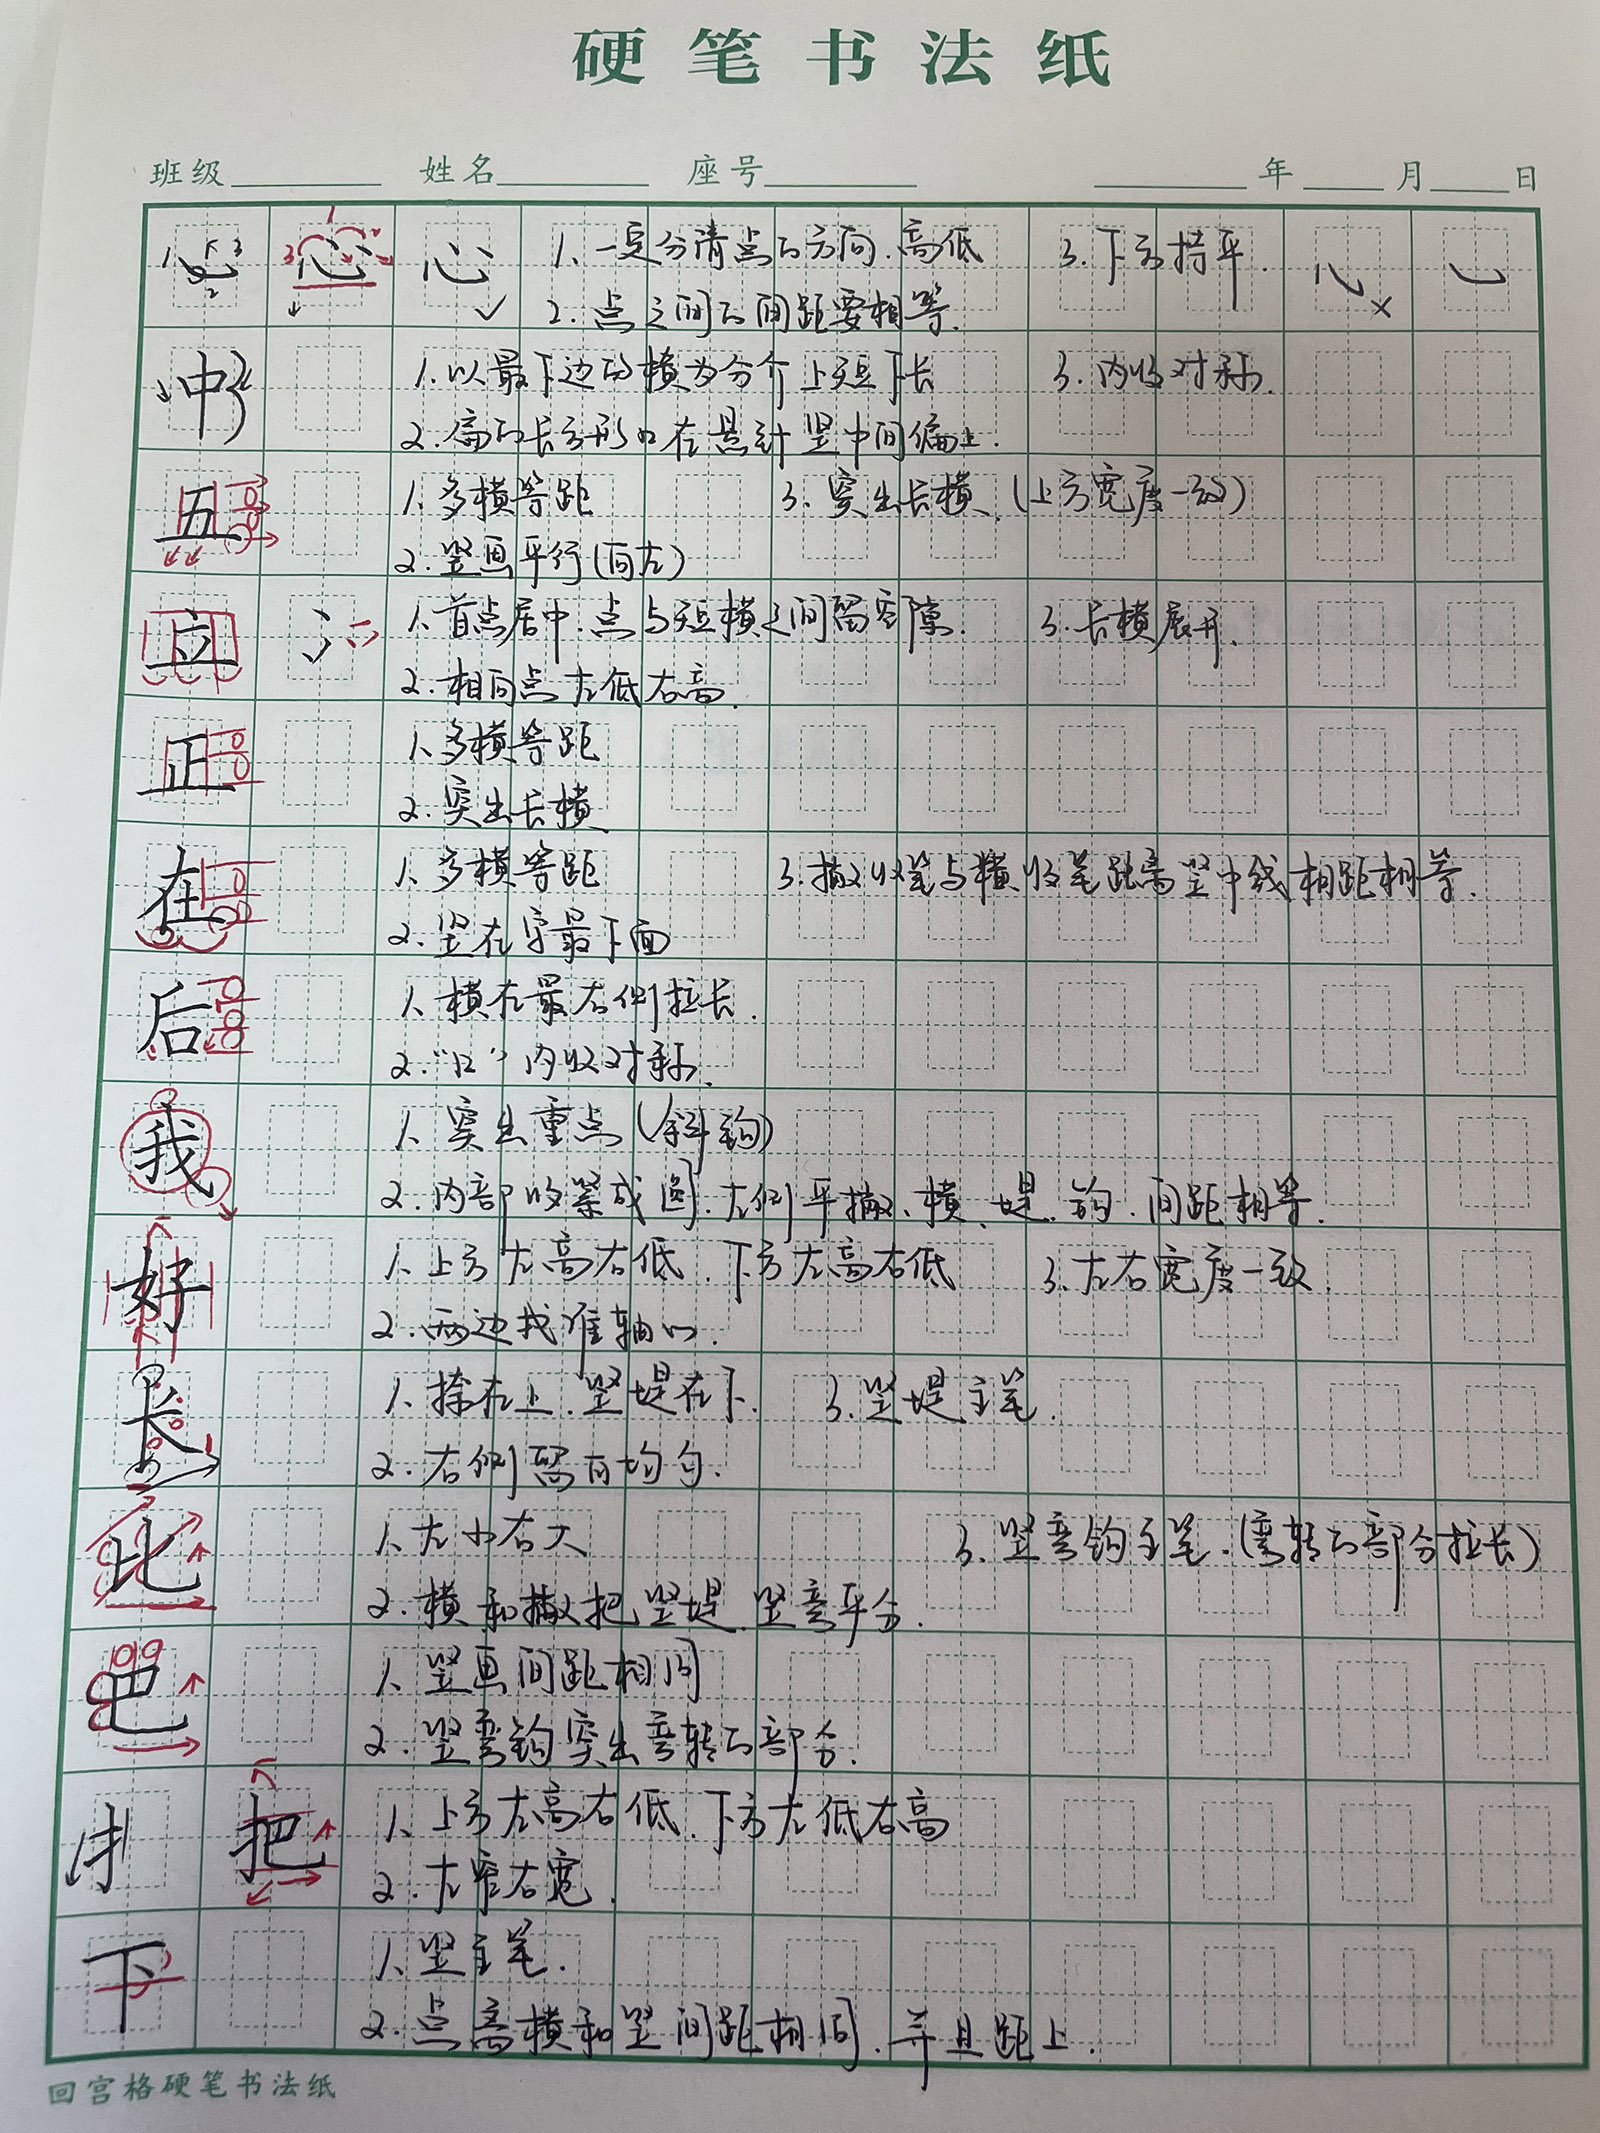 硬笔书法纸
班级 姓名 座号 年 月 日
1 2 3 3 1 心 1、一定分清点的方向、高低 3、下方持平.
2、点之间的间距要相等.
中 1、以最下边的横为分介上短下长 3、内收对称.
2、扁的长方形口在悬针竖中间偏上.
五 1、多横等距 3、突出长横、(上方宽度一致)
2、竖画平行(向左)
立 1、首点居中、点与短横之间留空隙. 3、长横展开.
2、相向点左低右高.
正 1、多横等距
2、突出长横
在 1、多横等距 3、撇收笔与横收笔距离竖中线相距相等.
2、竖在字最下面
后 1、横在最右侧拉长.
2、“口”内收对称.
我 1、突出重点(斜钩)
2、内部收紧成圆、左侧平撇、横、堤、钩、间距相等.
好 1、上方左高右低、下方左高右低 3、左右宽度一致.
2、两边找准轴心.
长 1、捺在上、竖堤在下. 3、竖堤主笔.
2、右侧留白均匀.
比 1、左小右大 3、竖弯钩主笔.(弯转的部分拉长)
2、横和撇把竖堤、竖弯平分.
巴 1、竖画间距相同
2、竖弯钩突出弯转的部分.
扌 把 1、上方左高右低、下方左低右高
2、左窄右宽.
下 1、竖主笔.
2、点离横和竖间距相同、并且距上.
回宫格硬笔书法纸